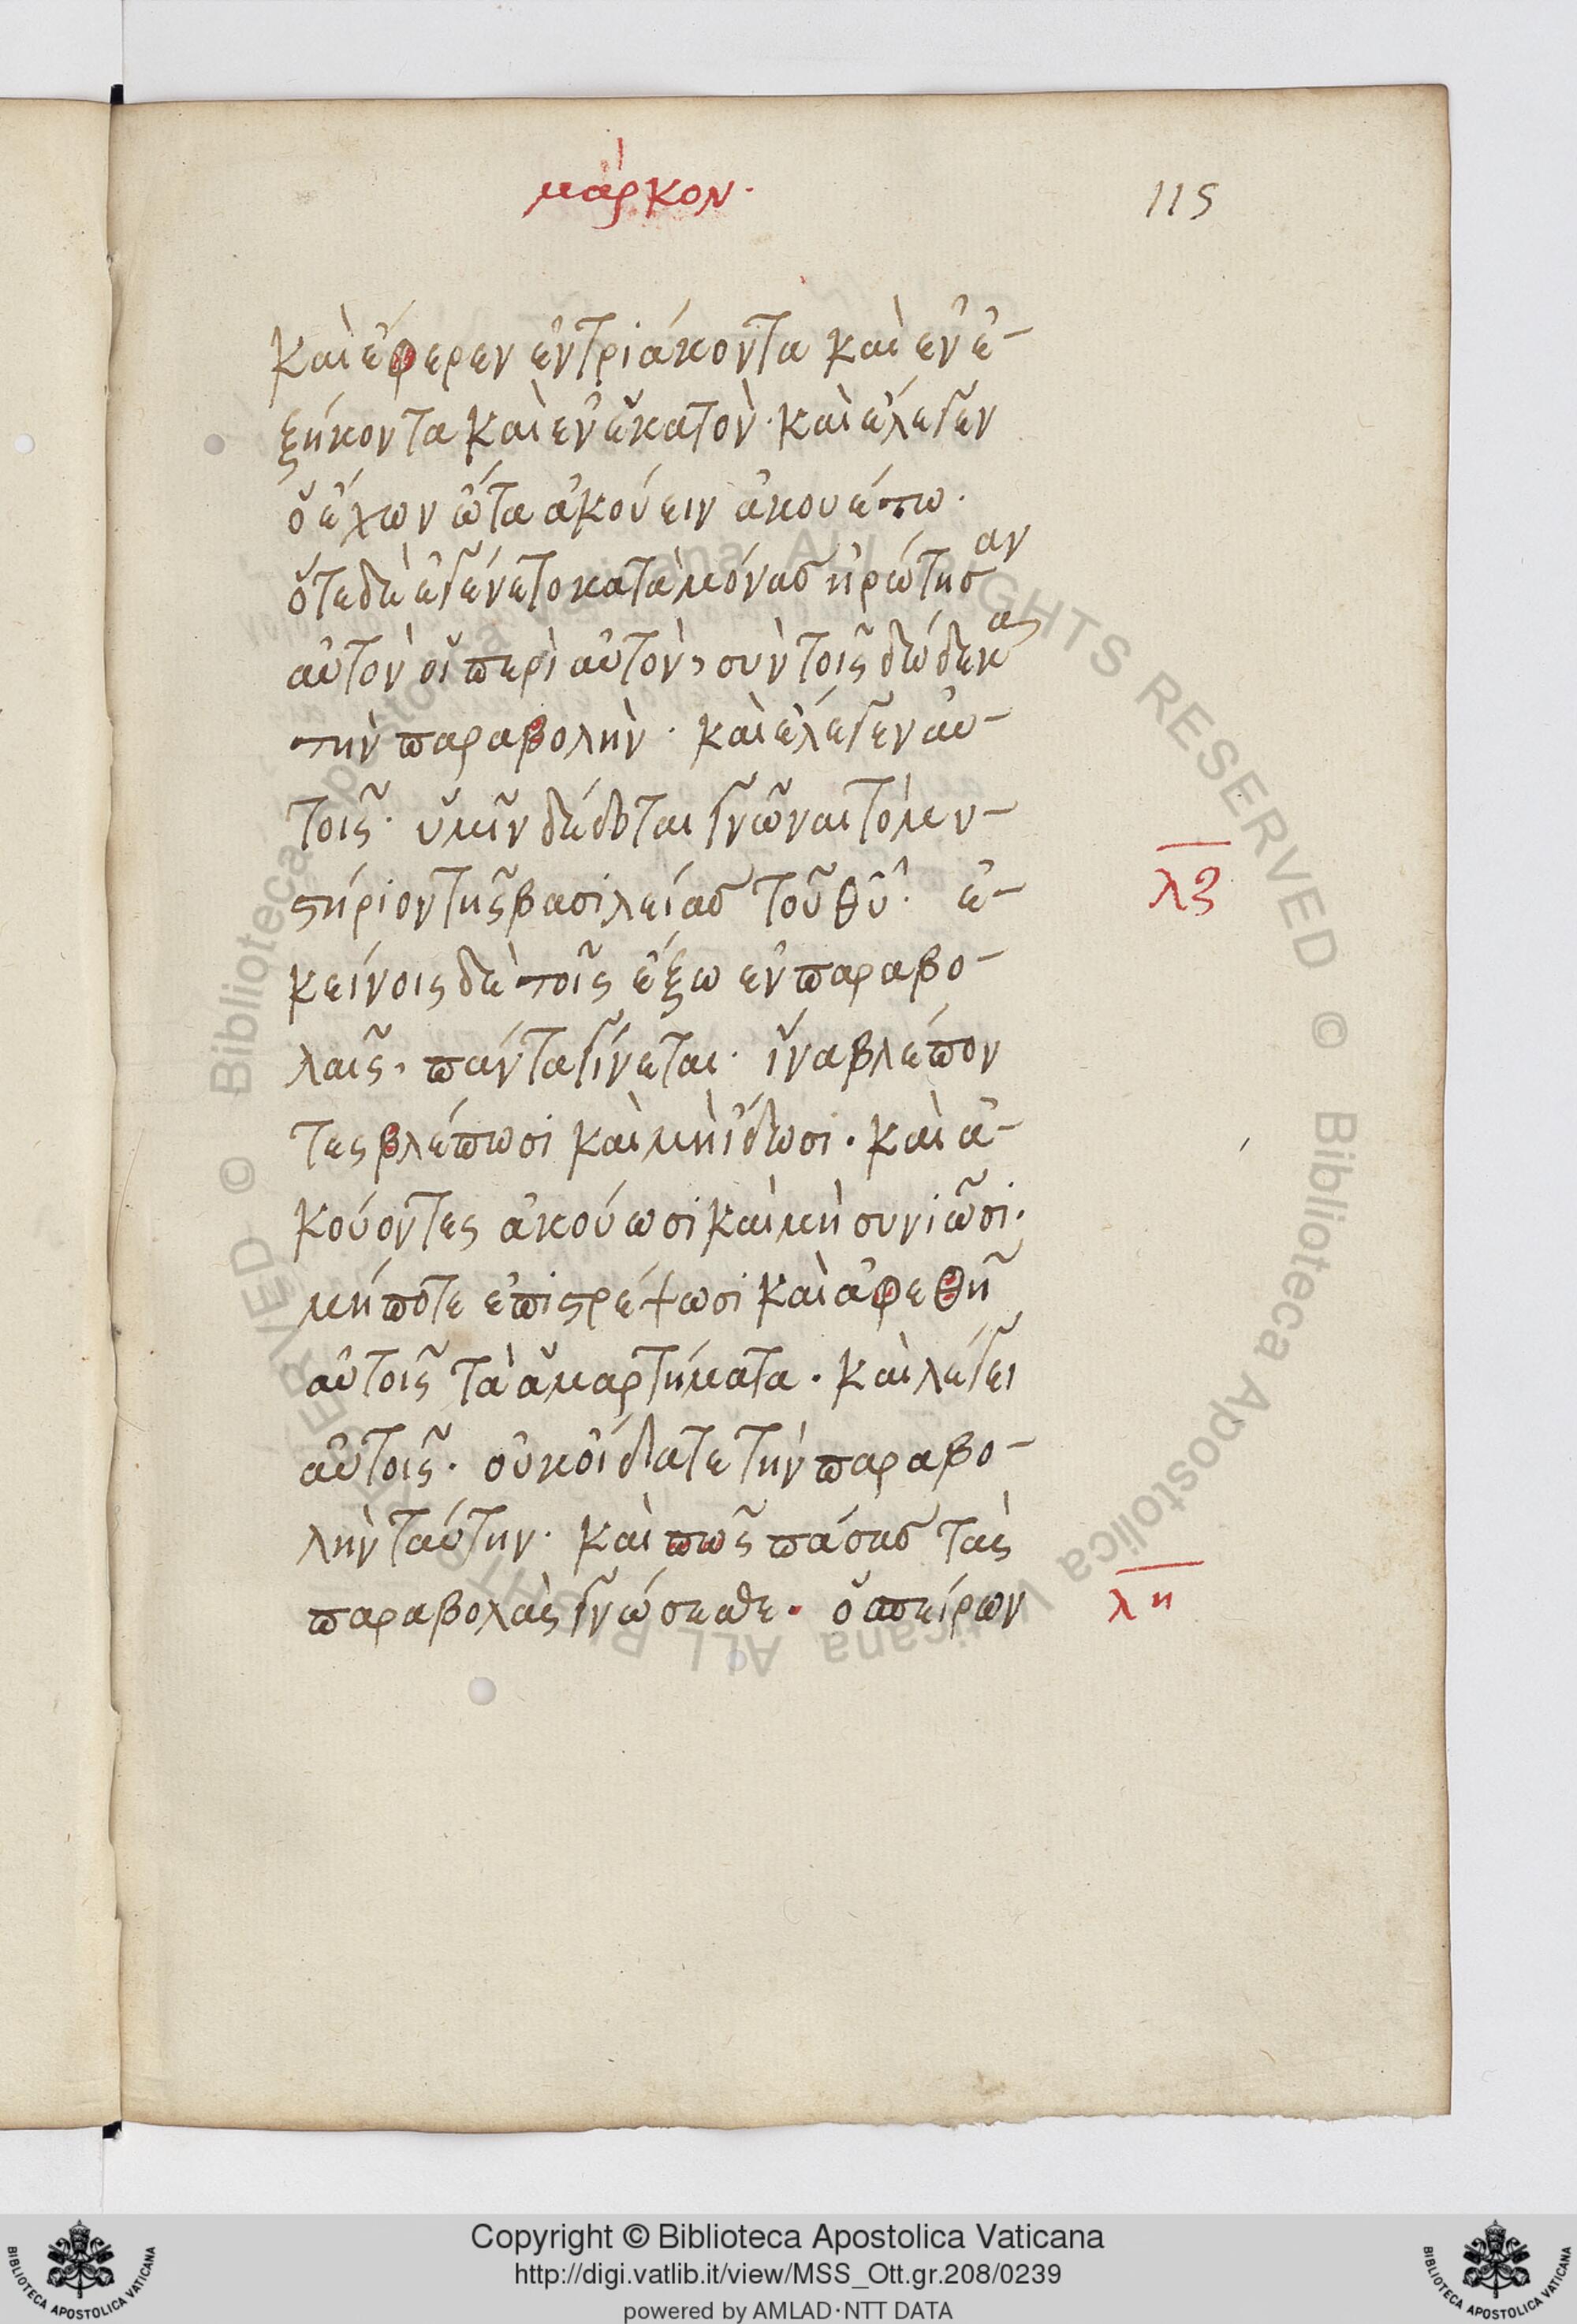 μάρκον.
115
καὶ ἔφερεν ἐν τριάκοντα καὶ ἐν ἐ-
ξήκοντα καὶ ἐν ἑκατὸν· καὶ ἔλεγεν
ὁ ἔχων ὦτα ἀκούειν ἀκουέτω·
ὅτε δὲ ἐγένετο καταμόνας ἠρώτησαν
αὐτὸν οἱ περὶ αὐτὸν, σὺν τοῖς δώδεκα
τὴν παραβολὴν· καὶ ἔλεγεν αὐ-
τοῖς· ὑμῖν δέδοται γνῶναι τὸ μυ-
στήριον τῆς βασιλείας τοῦ θῦ· ἐ-
λζ
κείνοις δὲ τοῖς ἔξω ἐν παραβο-
λαῖς, πάντα γίνεται· ἵνα βλέπον
τες βλέπωσι καὶ μὴ ἴδωσι· καὶ ἀ-
κούοντες ἀκούωσι καὶ μὴ συνιῶσι·
μήποτε ἐπιστρέψωσι καὶ ἀφεθῆ
αὐτοῖς τὰ ἁμαρτήματα· καὶ λέγει
αὐτοῖς· οὐκ οἴδατε τὴν παραβο-
λὴν ταύτην· καὶ πῶς πάσας τὰς
παραβολὰς γνώσεσθε· ὁ σπείρων
λη
© Biblioteca Apostolica Vaticana ALL RIGHTS RESERVED © Biblioteca Apostolica Vaticana ALL RIGHTS RESERVED
Copyright © Biblioteca Apostolica Vaticana
http://digi.vatlib.it/view/MSS_Ott.gr.208/0239
powered by AMLAD·NTT DATA
BIBLIOTECA APOSTOLICA VATICANA
BIBLIOTECA APOSTOLICA VATICANA